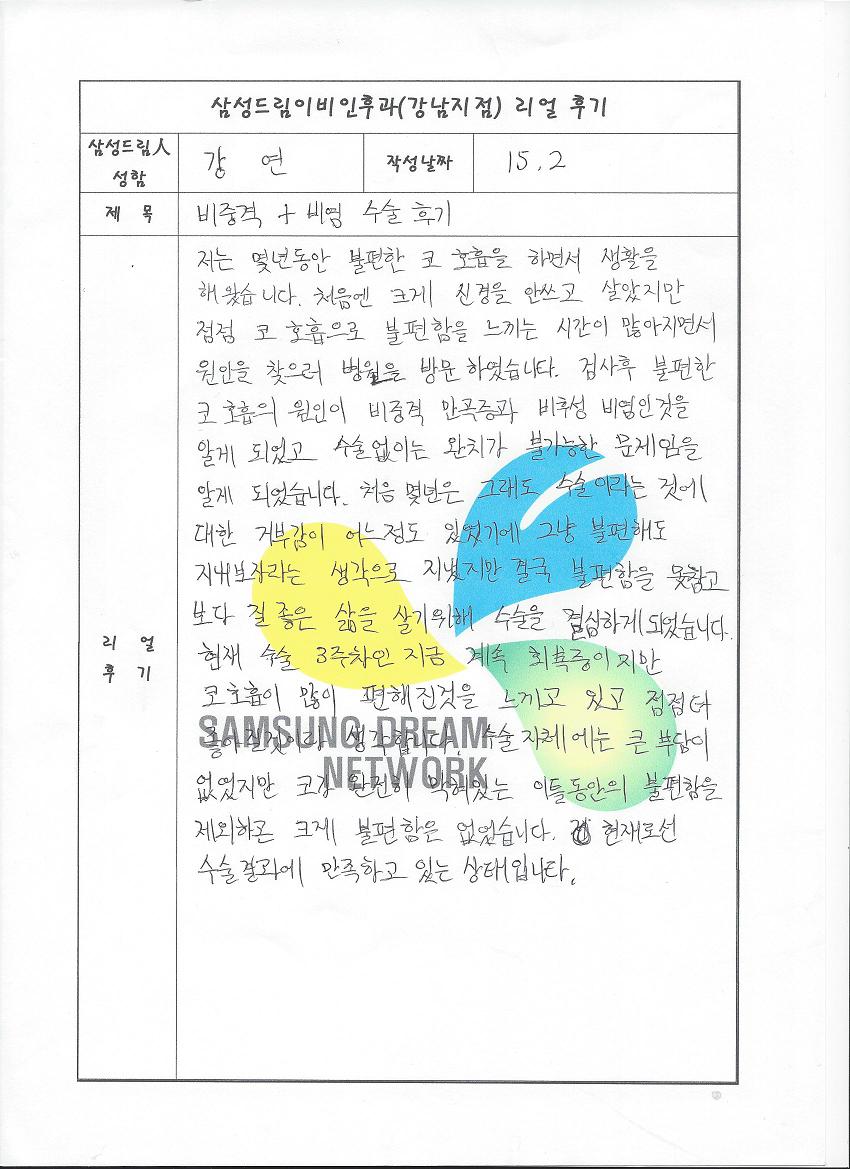 삼성드림이비인후과(강남지점) 리얼 후기
삼성드림人 성함
강 연
작성날짜
15.2
제 목
비중격 + 비염 수술 후기
리 얼
후 기
저는 몇년동안 불편한 코 호흡을 하면서 생활을
해 왔습니다. 처음엔 크게 신경을 안쓰고 살았지만
점점 코 호흡으로 불편함을 느끼는 시간이 많아지면서
원인을 찾으러 병원을 방문 하였습니다. 검사후 불편한
코 호흡의 원인이 비중격 만곡증과 비후성 비염인것을
알게 되었고 수술없이는 완치가 불가능한 문제임을
알게 되었습니다. 처음 몇년은 그래도 수술이라는 것에
대한 거부감이 어느정도 있었기에 그냥 불편해도
지내보자라는 생각으로 지냈지만 결국 불편함을 못참고
보다 질 좋은 삶을 살기위해 수술을 결심하게 되었습니다.
현재 수술 3주차인 지금 계속 회복중이지만
코호흡이 많이 편해진것을 느끼고 있고 점점 더
좋아질것이라 생각합니다. 수술 자체에는 큰 부담이
없었지만 코가 완전히 막혀있는 이틀동안의 불편함을
제외하곤 크게 불편함은 없었습니다. 현재로선
수술결과에 만족하고 있는 상태입니다.
SAMSUNG DREAM
NETWORK